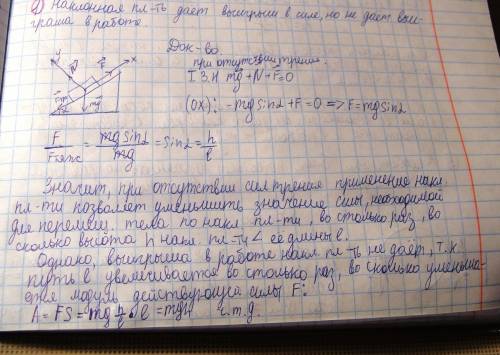 2) Наклонная пл-ть даёт выигрыш в силе, но не даёт выи-
граша в работе.
Док-во.
при отсутствии трения.
I З.Н mg + N + F = 0
(OX): -mg sinα + F = 0 => F = mg sinα
y F x N mg α h
F/Fтяж = mg sinα/mg = sinα = h/l
Значит, при отсутствии сил трения применение накл.
пл-ти позволяет уменьшить значение силы, необходимой
для перемещ. тела по накл. пл-ти, во столько раз, во
сколько высота h накл. пл-ти < её длины l.
Однако, выигрыша в работе накл. пл-ть не даёт, т.к.
путь l увеличивается во столько раз, во сколько уменьша-
ется модуль действующей силы F:
A = FS = mg h/l • l = mgh ч.т.д.